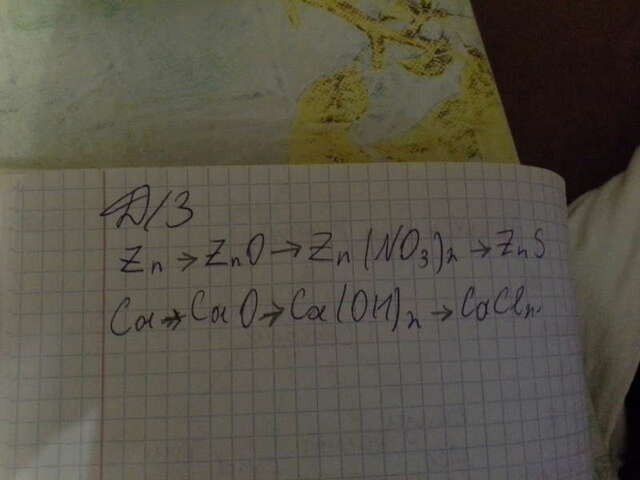 Д/З
Zn → ZnO → Zn(NO₃)₂ → ZnS
Ca → CaO → Ca(OH)₂ → CaCl₂